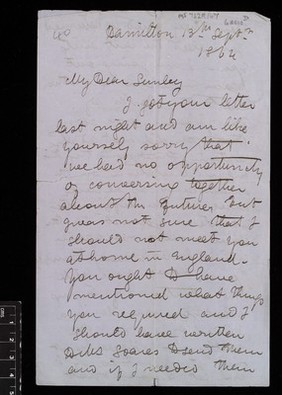 Hamilton 13th Septr
1864
My Dear Sunley
I got your letter
last night and am like
yourself sorry that
we had no opportunity
of conversing together
about the future but
was not sure that I
should not meet you
at home in England.
You ought to have
mentioned what things
you required and I
should have written
Soares to send them
and if I needed them